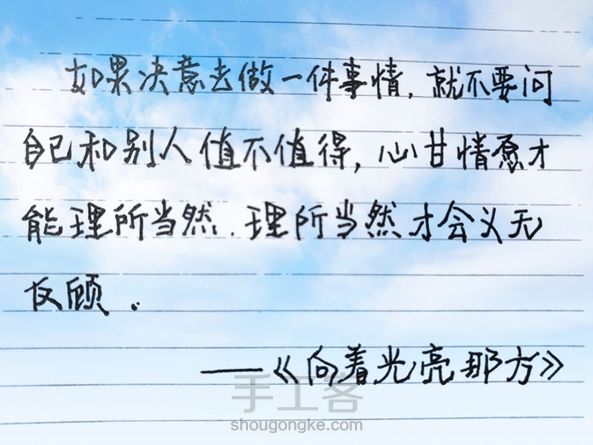 如果决意去做一件事情,就不要问
自己和别人值不值得,心甘情愿才
能理所当然.理所当然才会义无
反顾.
——《向着光亮那方》
手工客
shougongke.com